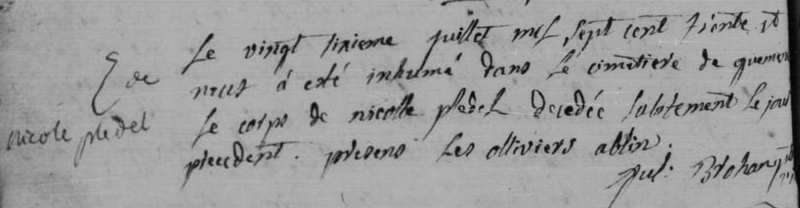 E de
nicole pledel
Le vingt sixieme juillet mil sept cent trente et
neuf á esté inhumé dans le cimetiere de quemen
Le corps de nicolle pledel decedée subitement le jour
precedent. presens Les olliviers ablin.
Jul. Brohan